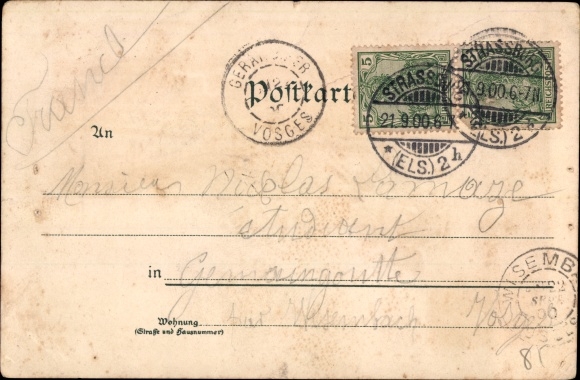 France
GÉRARDMER
VOSGES
5
5
STRASSBURG
21.9.00.6-7N
*(ELS.)2h
STRASSBURG
21.9.00.6-7N
(ELS.)2
Postkart
An
Monsieur Nicolas Lamaze
étudiant
in Gemaingoutte
par Wisembach Vosges
WISEMBA
Wohnung
(Straße und Hausnummer)
85